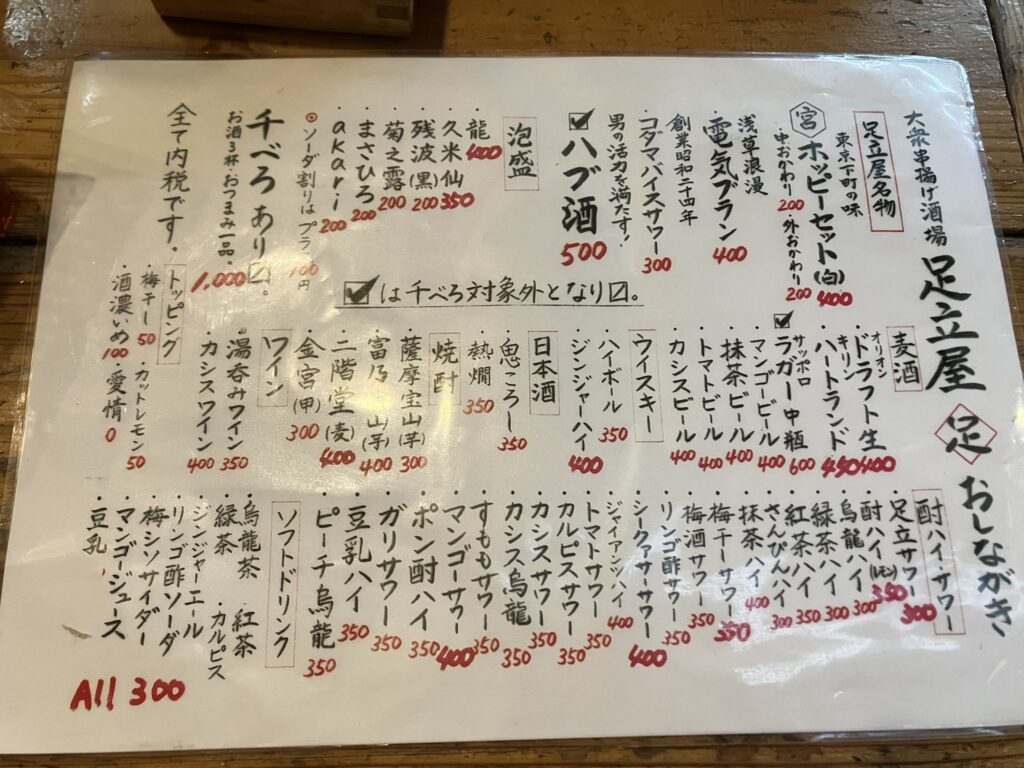 大衆串揚げ酒場 足立屋 足 おしながき
足立屋名物
東京下町の味
宮 ホッピーセット(白) 400
中おかわり 200 ・外おかわり 200
浅草浪漫
電気ブラン 400
創業昭和二十四年
コダマバイスサワー 300
男の活力を満たす!
☑ハブ酒 500
泡盛
・龍 400
・久米仙 350
・残波(黒) 200
・菊之露 200
・まさひろ 200
・akari 200
◎ソーダ割りはプラ 100円
千べろあり〼。
お酒3杯・おつまみ一品。1,000
全て内税です。
☑は千べろ対象外となり〼。
麦酒
・オリオン ドラフト生 400
・キリン ハートランド 450
☑・サッポロ ラガー中瓶 600
・マンゴービール 400
・抹茶ビール 400
・トマトビール 400
・カシスビール 400
ウイスキー
・ハイボール 350
・ジンジャーハイ 400
日本酒
・鬼ごろし 350
・熱燗 350
焼酎
・薩摩宝山(芋) 300
・富乃山(芋) 400
・二階堂(麦) 400
・金宮(甲) 300
ワイン
・湯呑みワイン 350
・カシスワイン 400
トッピング
・梅干し 50 ・カットレモン 50
・酒濃いめ 100 ・愛情 0
酎ハイ・サワー
・足立サワー 300
・酎ハイ(レモン) 350
・烏龍ハイ 300
・緑茶ハイ 300
・紅茶ハイ 350
・さんぴんハイ 300
・抹茶ハイ 400
・梅干しサワー 350
・梅酒サワー 350
・リンゴ酢サワー 350
・シークァーサーサワー 400
・ジャイアンハイ 400
・トマトサワー 350
・カルピスサワー 350
・カシスサワー 350
・カシス烏龍 350
・すももサワー 350
・マンゴーサワー 400
・ポン酎ハイ 350
・ガリサワー 350
・豆乳ハイ 350
・ピーチ烏龍 350
ソフトドリンク
・烏龍茶 ・紅茶
・緑茶 ・カルピス
・ジンジャーエール
・リンゴ酢ソーダ
・梅シソサイダー
・マンゴージュース
・豆乳
All 300